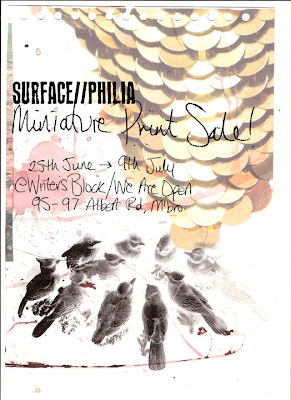 SURFACE//PHILIA
Miniature Print Sale!
25th June → 9th July
@Writers Block/We Are Open
95-97 Albert Rd, M'bro.